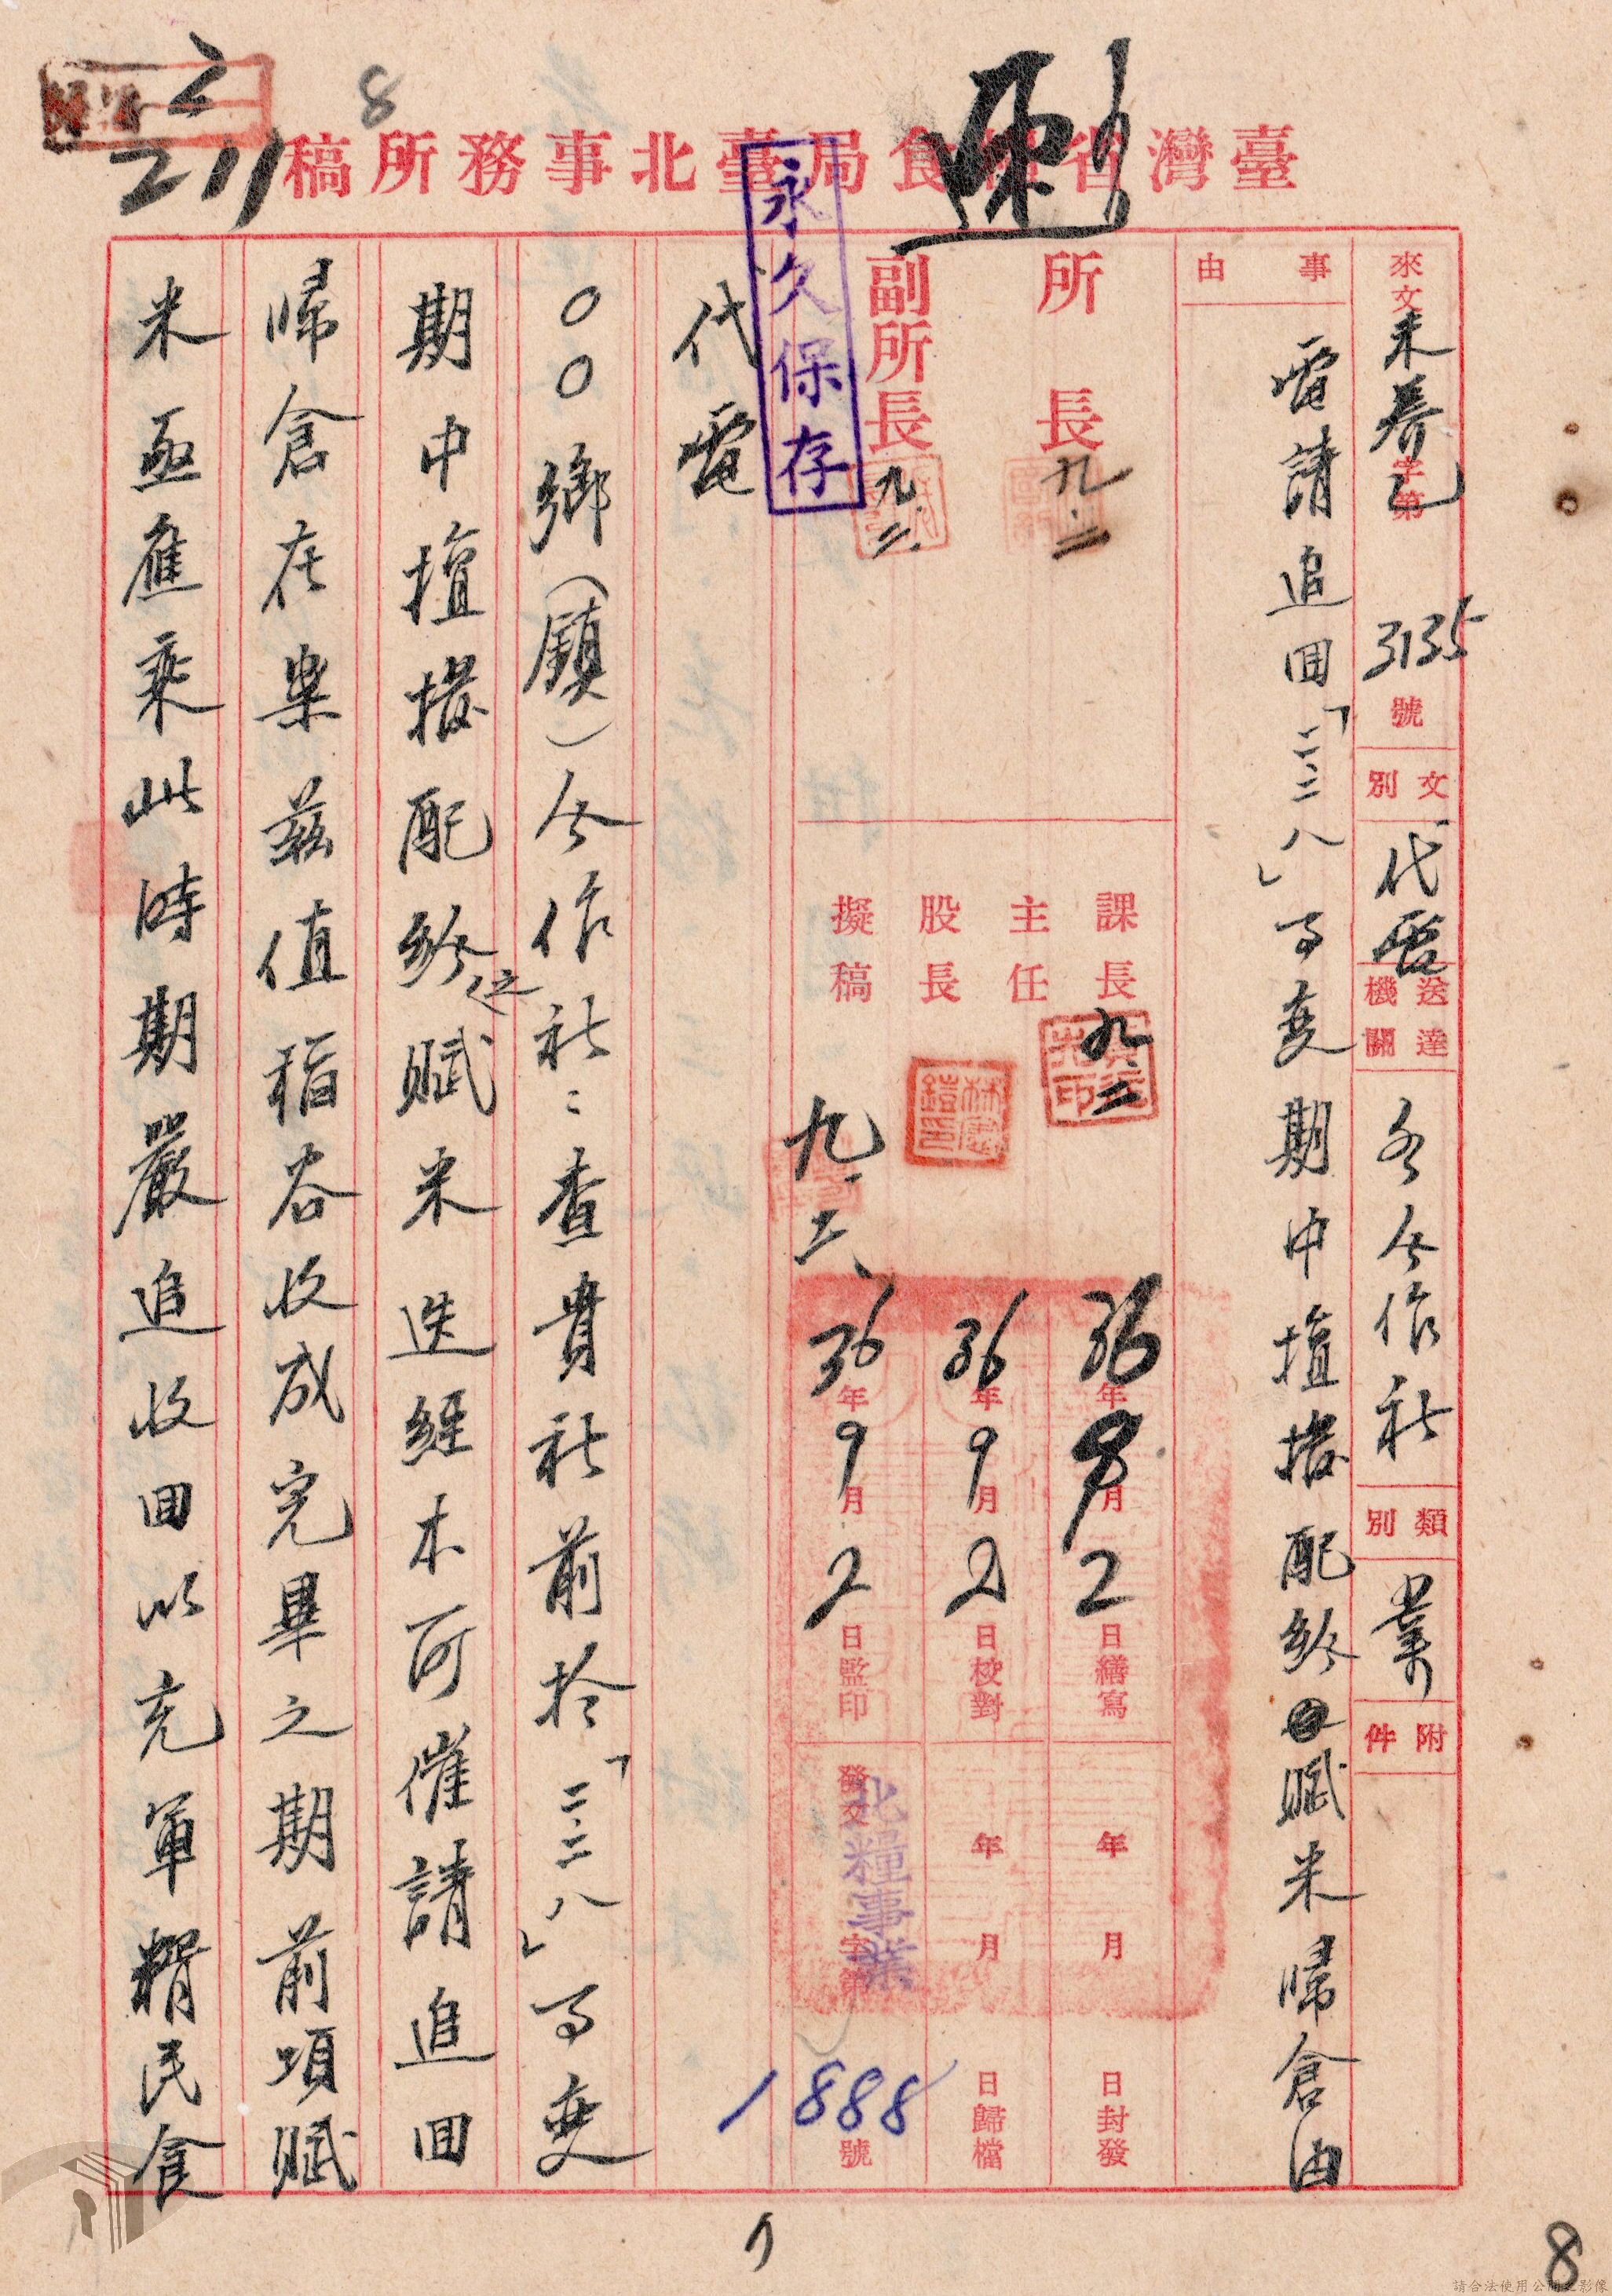 速
臺灣省糧食局臺北事務所稿
8
211
永久保存
來文未養乙字第3135號
文別
代電
送達機關
各合作社
類別
業
附件
事由
電請追囬「二、二八」事変期中擅撥配給賦米歸倉由
所長
九.二
副所長
九.二.
課長
九.二
主任
股長
擬稿
九.二、
36年9月2日繕寫
36年9月2日校對
36年9月2日監印
年月日封發
年月日歸檔
發文北糧事業字第1888號
代電
〇〇鄉（鎮）合作社：查貴社前於「二、二八」事変
期中擅撥配給之賦米迭經本所催請追囬
歸倉在案茲值稻谷收成完畢之期前項賦
米亟應乘此時期嚴追收囬以充軍糈民食
8
請合法使用公開之影像